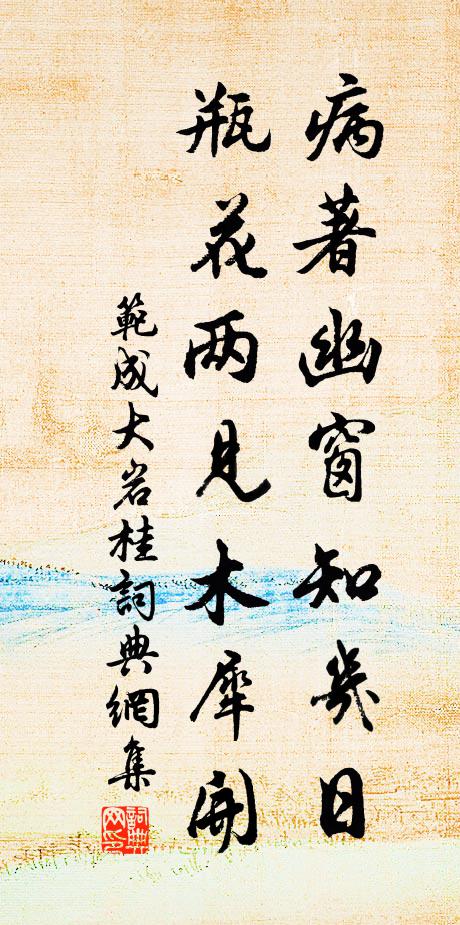 病著幽窗知幾日
瓶花两見木犀開
範成大岩桂詞典網集
詞典网印